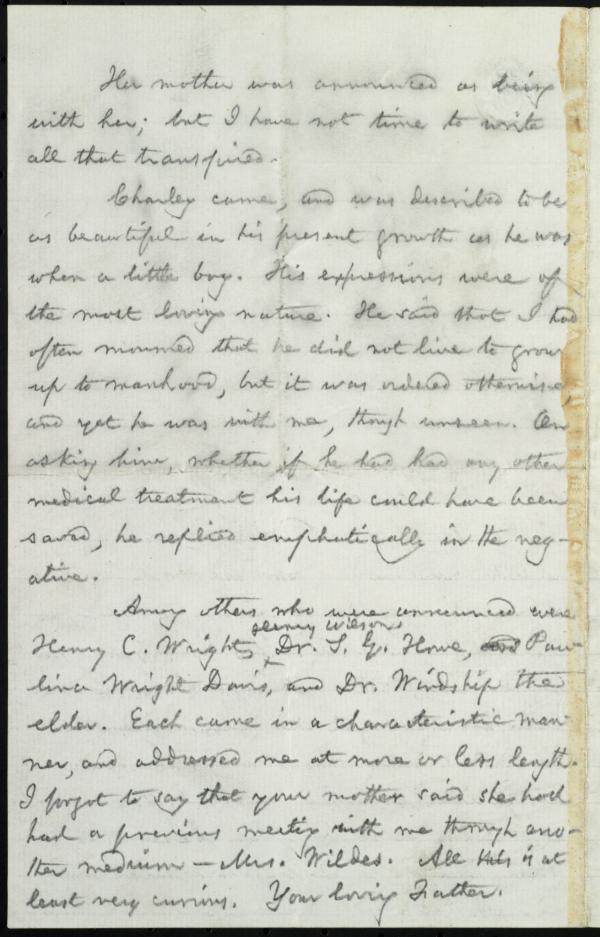 Her mother was announced as being
with her; but I have not time to write
all that transpired.
Charley came, and was described to be
as beautiful in his present growth as he was
when a little boy. His expressions were of
the most loving nature. He said that I had
often mourned that he did not live to grow
up to manhood, but it was ordered otherwise,
and yet he was with me, though unseen. On
asking him, whether if he had had any other
medical treatment his life could have been
saved, he replied emphatically in the neg-
ative.
Among others who were announced were
Henry Wilson,
Henry C. Wright, Dr. S. G. Howe, and Pau-
lina Wright Davis, and Dr. Windship the
elder. Each came in a characteristic man-
ner, and addressed me at more or less length.
I forgot to say that your mother said she had
had a previous meeting with me through ano-
ther medium – Mrs. Wildes. All this is at
least very curious. Your loving Father.